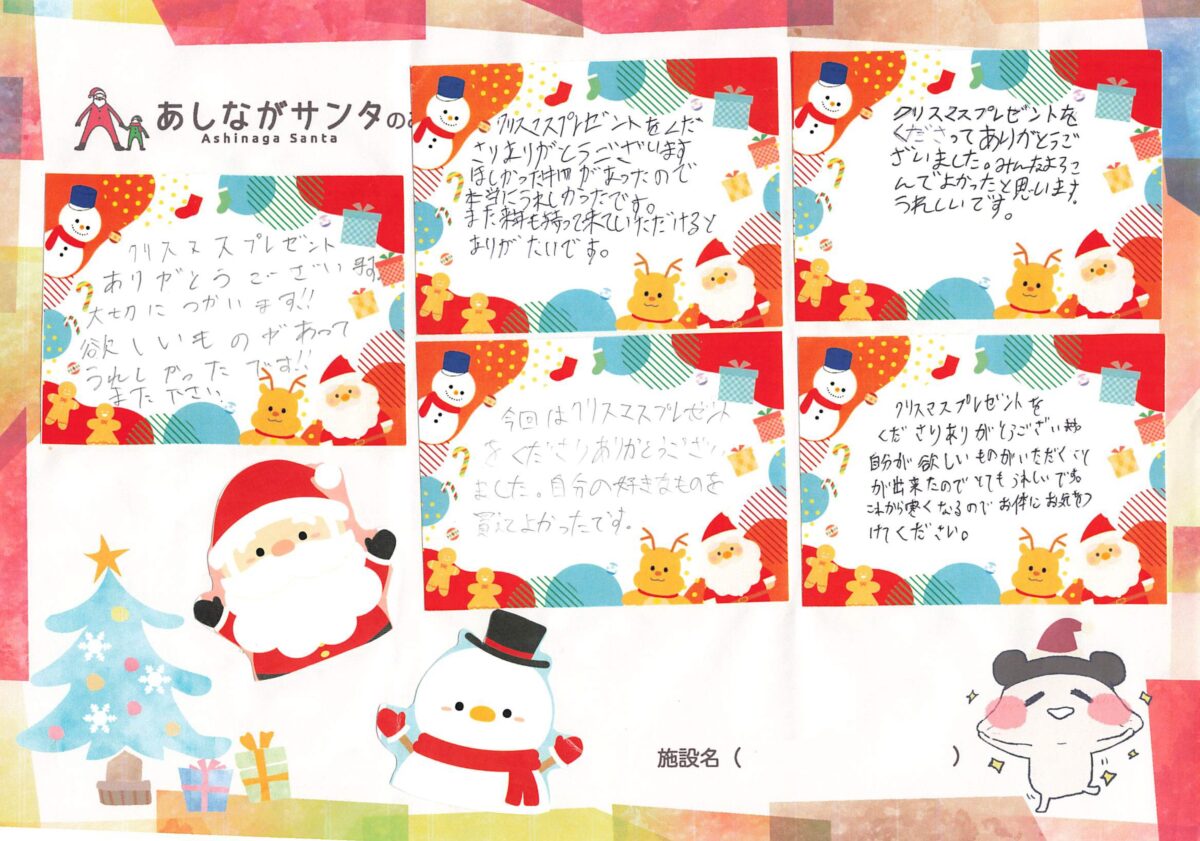 あしながサンタの
Ashinaga Santa
クリスマスプレゼント
ありがとうございます
大切につかいます!!
欲しいものがあって
うれしかったです!!
また下さい
クリスマスプレゼントをくだ
さりありがとうございます
ほしかった物があったので
本当にうれしかったです。
また来年も持って来ていただけると
ありがたいです。
クリスマスプレゼントを
くださってありがとうご
ざいました。みんなよろこ
んでよかったと思います。
うれしいです。
今回はクリスマスプレゼント
をくださりありがとうござい
ました。自分の好きなものを
買えてよかったです。
クリスマスプレゼントを
くださりありがとうございます
自分が欲しいものがいただくこと
が出来たのでとてもうれしいです。
これから寒くなるのでお体にお気をつ
けてください。
施設名( )